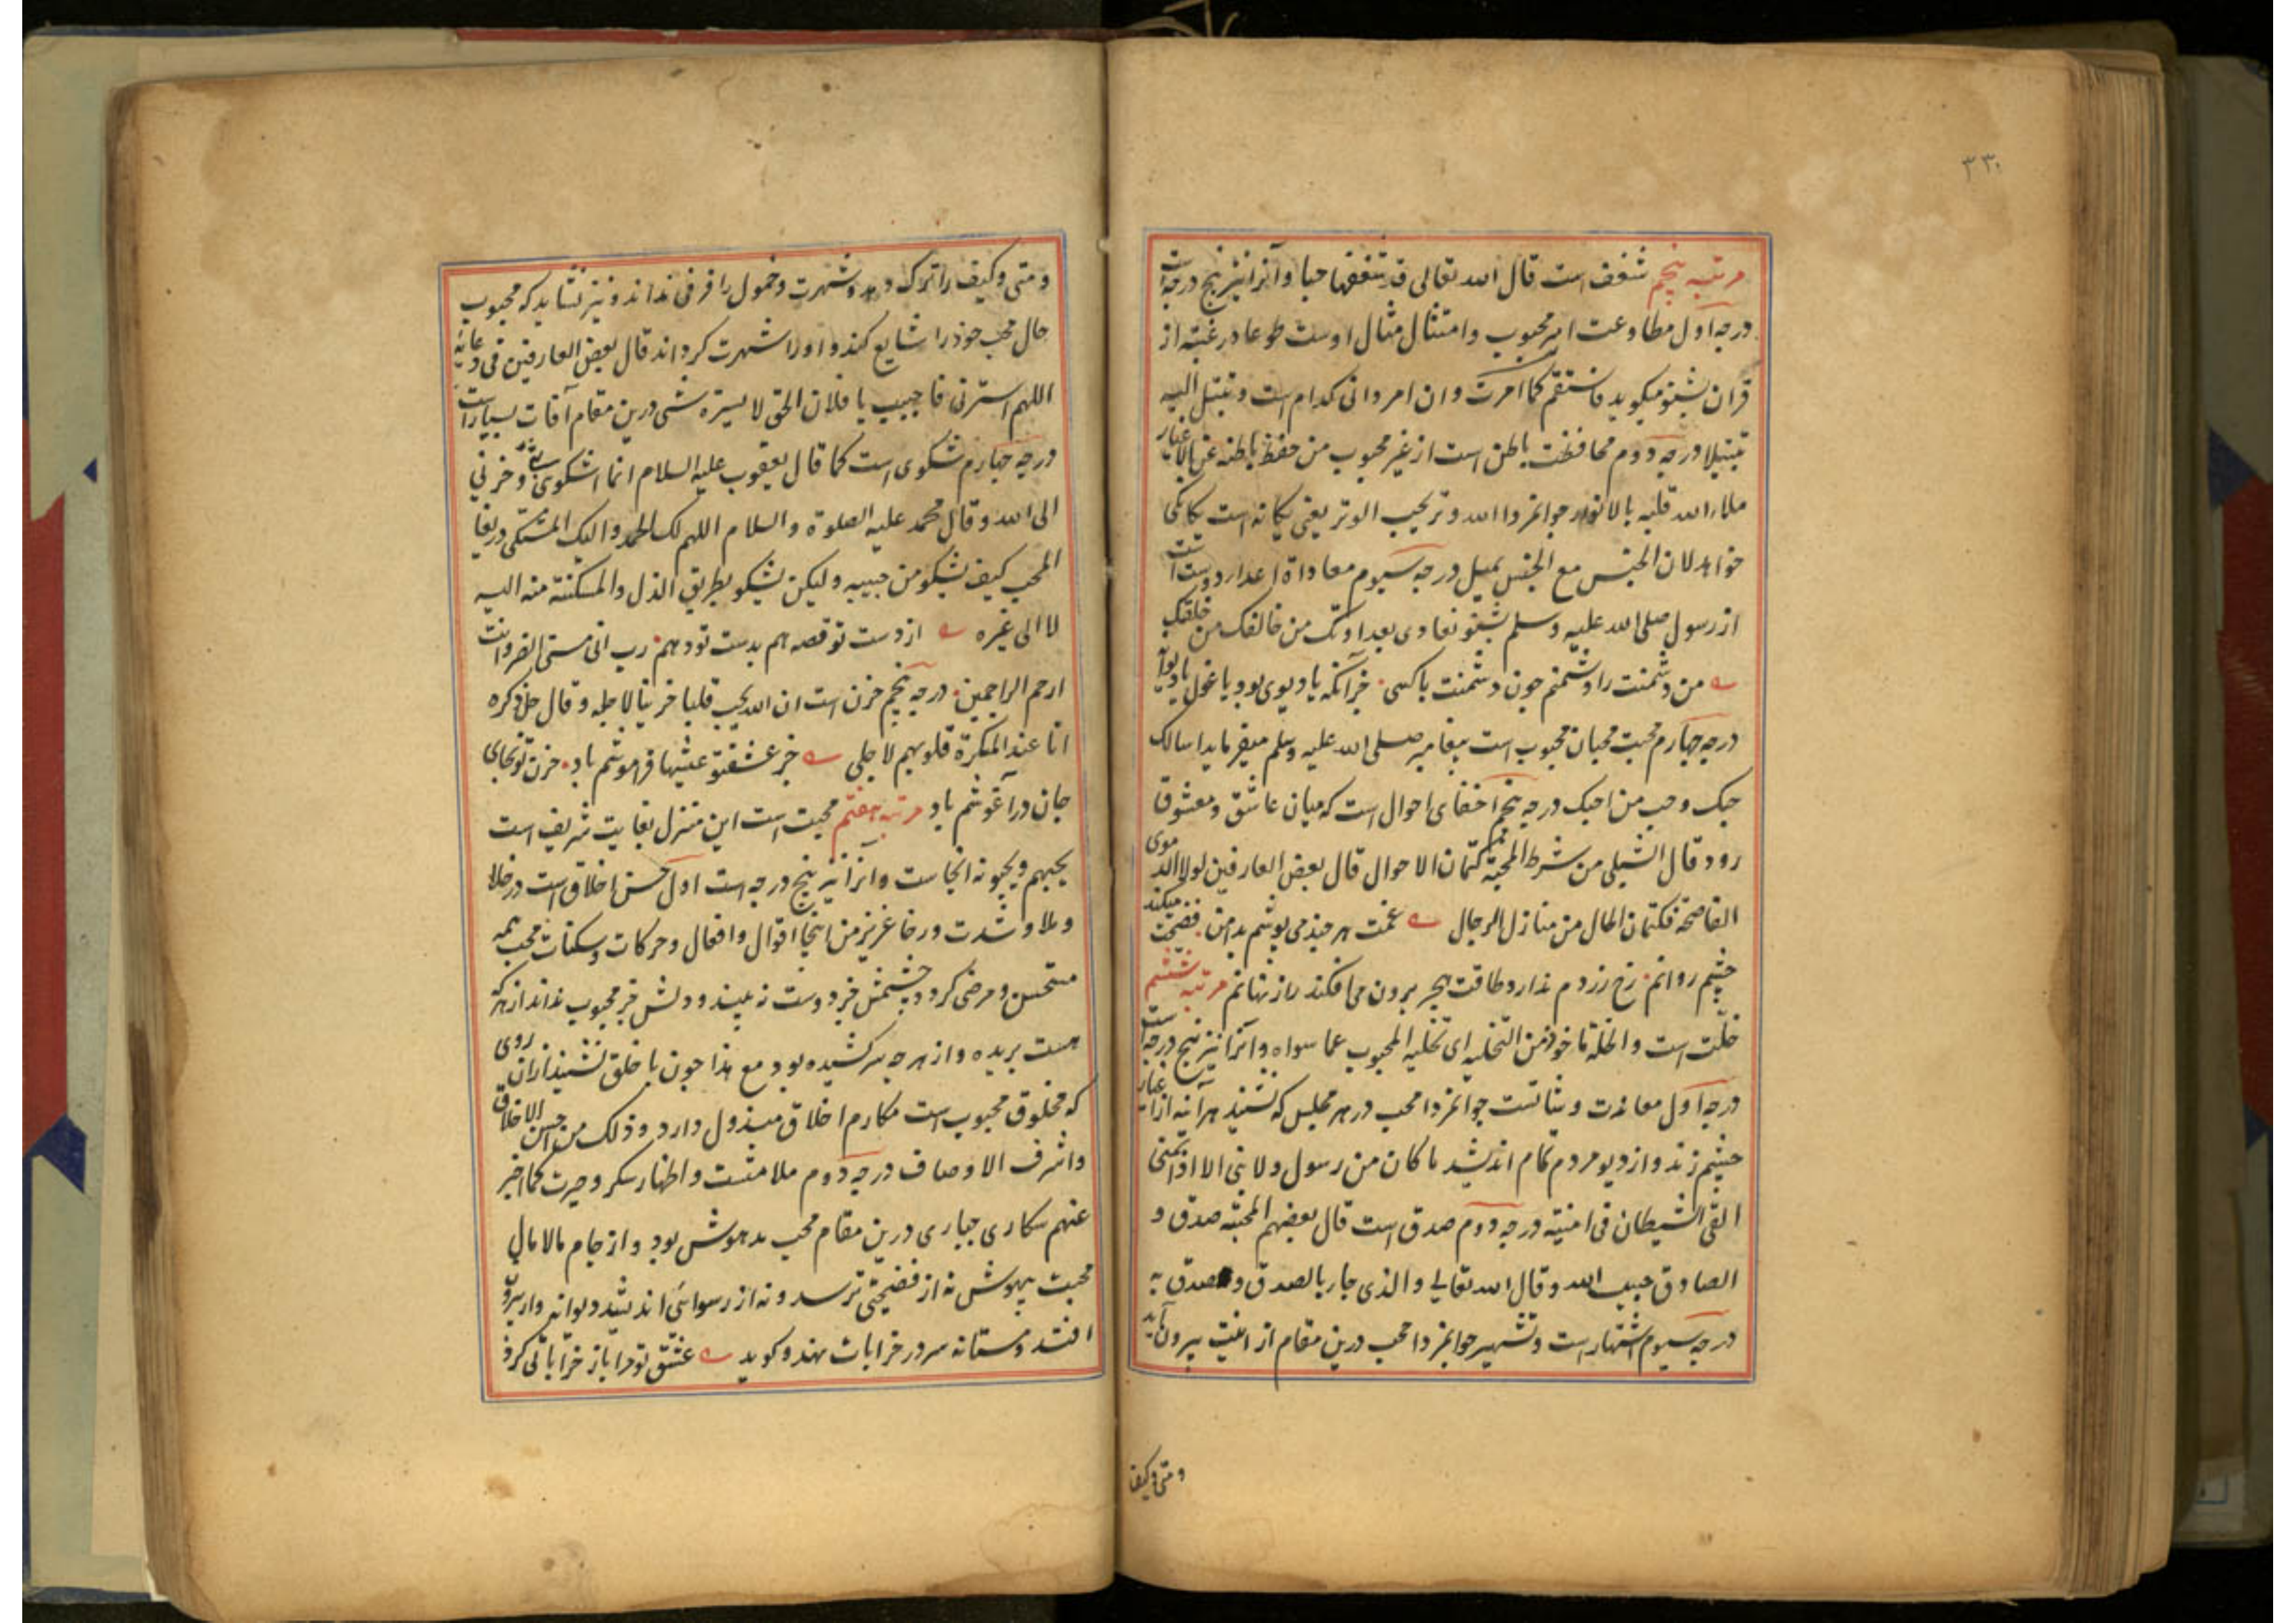 ۳۳۰
مرتبه پنجم شغف است قال الله تعالی قد شغفها حبا وآنرا نیز پنج درجه است
درجه اول مطاوعت امر محبوب وامتثال مثال اوست طوعا ورغبته از
قران بشنو میکوید فاستقم کما امرت وان امر دانی کدام است وتبتل الیه
تبتیلا درجه دوم محافظت باطن است از غیر محبوب من حفظ باطنه عن الاغیار
ملاء الله قلبه بالانوار جوانمردا الله وتر یحب الوتر یعنی یکانه است یکانکی
خواهد لان الجنس مع الجنس یمیل درجه سیوم معاداة اعداء دوست است
از رسول صلی الله علیه وسلم بشنو نعادی بعداوتک من خالفک من خلقک
من دشمنت را دشمنم جون دشمنت باکسی جز آنکه یا دیوی بود یا غول یا دیوآ
درجه چهارم محبت محبان محبوب است پیغامبر صلی الله علیه وسلم میفرماید اسالک
حبک وحب من احبک درجه پنجم اخفای احوال است که میان عاشق ومعشوق
رود قال الشبلی من شرط المحبة کتمان الاحوال قال بعض العارفین لولا الدموع
الفاضحة فکتمان الحال من منازل الرجال غمت هر چند می پوشم بدامن فضیحت میکند
چشم روانم رخ زردم ندارد طاقت هجر برون می افکند راز نهانم مرتبه ششم
خلت است والخلة ماخوذ من التخلیه ای تخلیه المحبوب عما سواه وآنرا نیز پنج درجه است
درجه اول معاندت جوانمردا محب در هر مجلس که نشیند هر آینه از اغیار
چشم زند واز دیو مردم تمام اندیشد ما کان من رسول ولا نبی الا اذا تمنی
القی الشیطان فی امنیته درجه دوم صدق است قال بعضهم المحبته صدق و
الصادق حبیب الله وقال الله تعالی والذی جاء بالصدق وصدق به
درجه سیوم اشتهار است وتشهیر جوانمردا محب درین مقام از بیرون آید
ومتی وکیف
ومتی وکیف را ترک دهد وشهرت وخمول را فرقی نداند ونیز نشاید که محبوب
حال محب خود را شایع کند واورا شهرت کرداند قال بعض العارفین فی دعائه
اللهم استرنی فاجیب یا فلان الحق لا یستره شی درین مقام آفات بسیار است
درجه چهارم شکوی است کما قال یعقوب علیه السلام انما اشکوی بثی وحزنی
الی الله وقال محمد علیه الصلوة والسلام اللهم لک الحمد والیک المشتکی دریغا
المحب کیف یشکو من حبیبه ولیکن یشکو بطریق الذل والمسکنته منه الیه
لا الی غیره از دست تو قصه هم بدست تو دهم رب انی مسنی الضر وانت
ارحم الراحمین درجه پنجم حزن است ان الله یحب قلبا حزینا لاجله وقال جل ذکره
انا عند المنکرة قلوبهم لاجلی جز عشقتو عشها فراموشم باد حزن تو بجای
جان در آغوشم باد مرتبه هفتم محبت است این منزل بغایت شریف است
یحبهم ویحبونه انجاست وآنرا نیز پنج درجه است اول حسن اخلاق است در خلا
وملا وشدت ورخا عزیز من اینجا اقوال وافعال وحرکات وسکنات محب همه
مستحسن ومرضی کردد چشمش جز دوست نه بیند ودلش جز محبوب نداند از هر که
هست بریده واز هر چه سرکشیده بود مع هذا جون با خلق نشیند ازان روی
که مخلوق محبوب است مکارم اخلاق مبذول دارد وذلک من احسن الاخلاق
واشرف الاوصاف درجه دوم ملامتست واظهار سکر وحیرت کما اخبر
عنهم سکاری حیاری درین مقام محب مدهوش بود واز جام مالامال
محبت بیهوش نه از فضیحتی ترسد ونه از رسوائی اندیشد دیوانه وار بیرون
افتد ومستانه سر در خرابات نهد وکوید عشق تو مرا باز خراباتی کرد